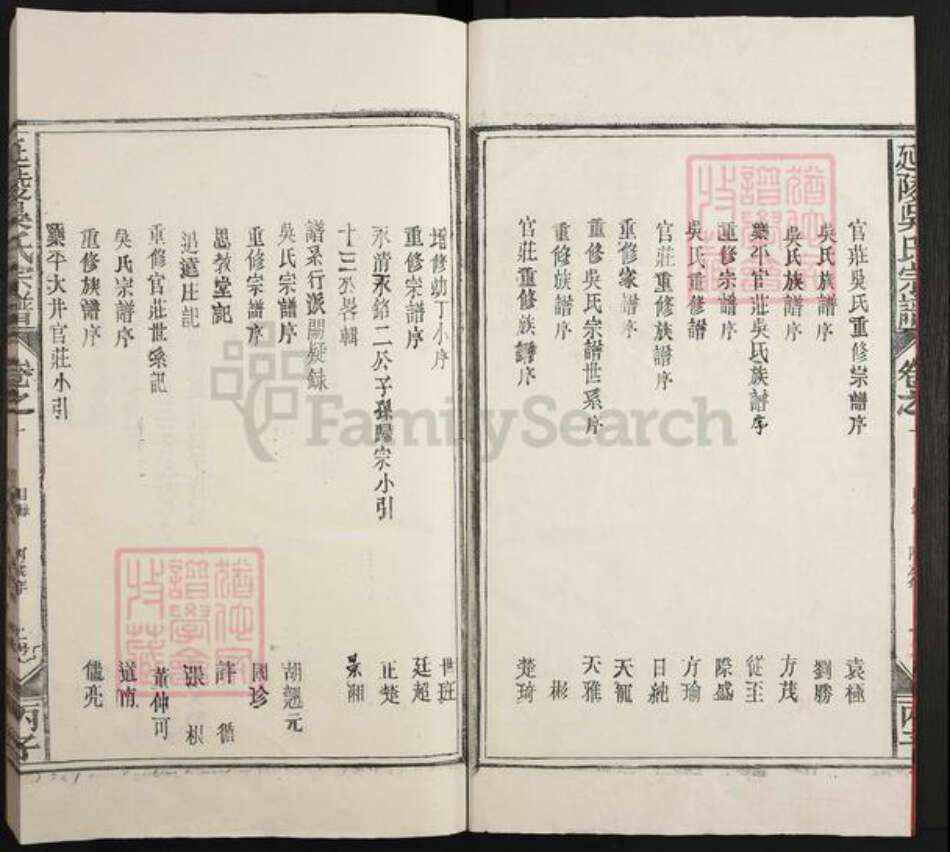 延陵吳氏宗譜
卷之一
丙子
官莊吳氏重修宗譜序 袁極
吳氏族譜序 劉勝
吳氏族譜序 方茂
樂平官莊吳氏族譜序 從至
重修宗譜序 際盛
吳氏重修譜 方瑜
官莊重修族譜序 日純
重修家譜序 天寵
重修吳氏宗譜世系序 天雅
重修族譜序 彬
官莊重修族譜序 楚琦
增修幼丁小序 世班
重修宗譜序 廷超
永清永銘二公子孫歸宗小引 正楚
十三公畧輯 景湘
譜系行派闕疑錄
吳氏宗譜序 胡翹元
重修宗譜序 國珍
思教堂記 許循
逍遙庄記 張根
重修官莊世系記 黃仲可
吳氏宗譜序 道南
重修族譜序 儒亮
樂平大井官莊小引
延陵吳氏宗譜
卷之一
丙子
猶他家譜學會收藏
猶他家譜學會收藏
FamilySearch